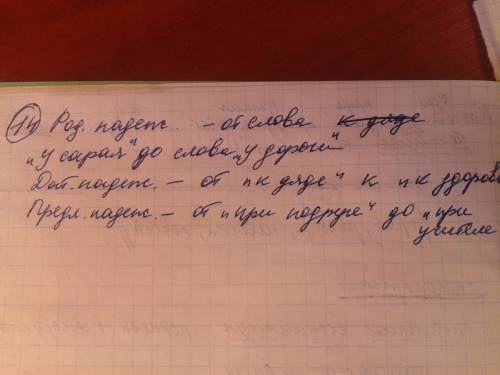 14) Род. падеж. – от слова к дяде
"у сарая" до слова "у дороги"
Дат. падеж. – от "к дяде" к "к здоров
Предл. падеж. – от "при подруге" до "при
учителе